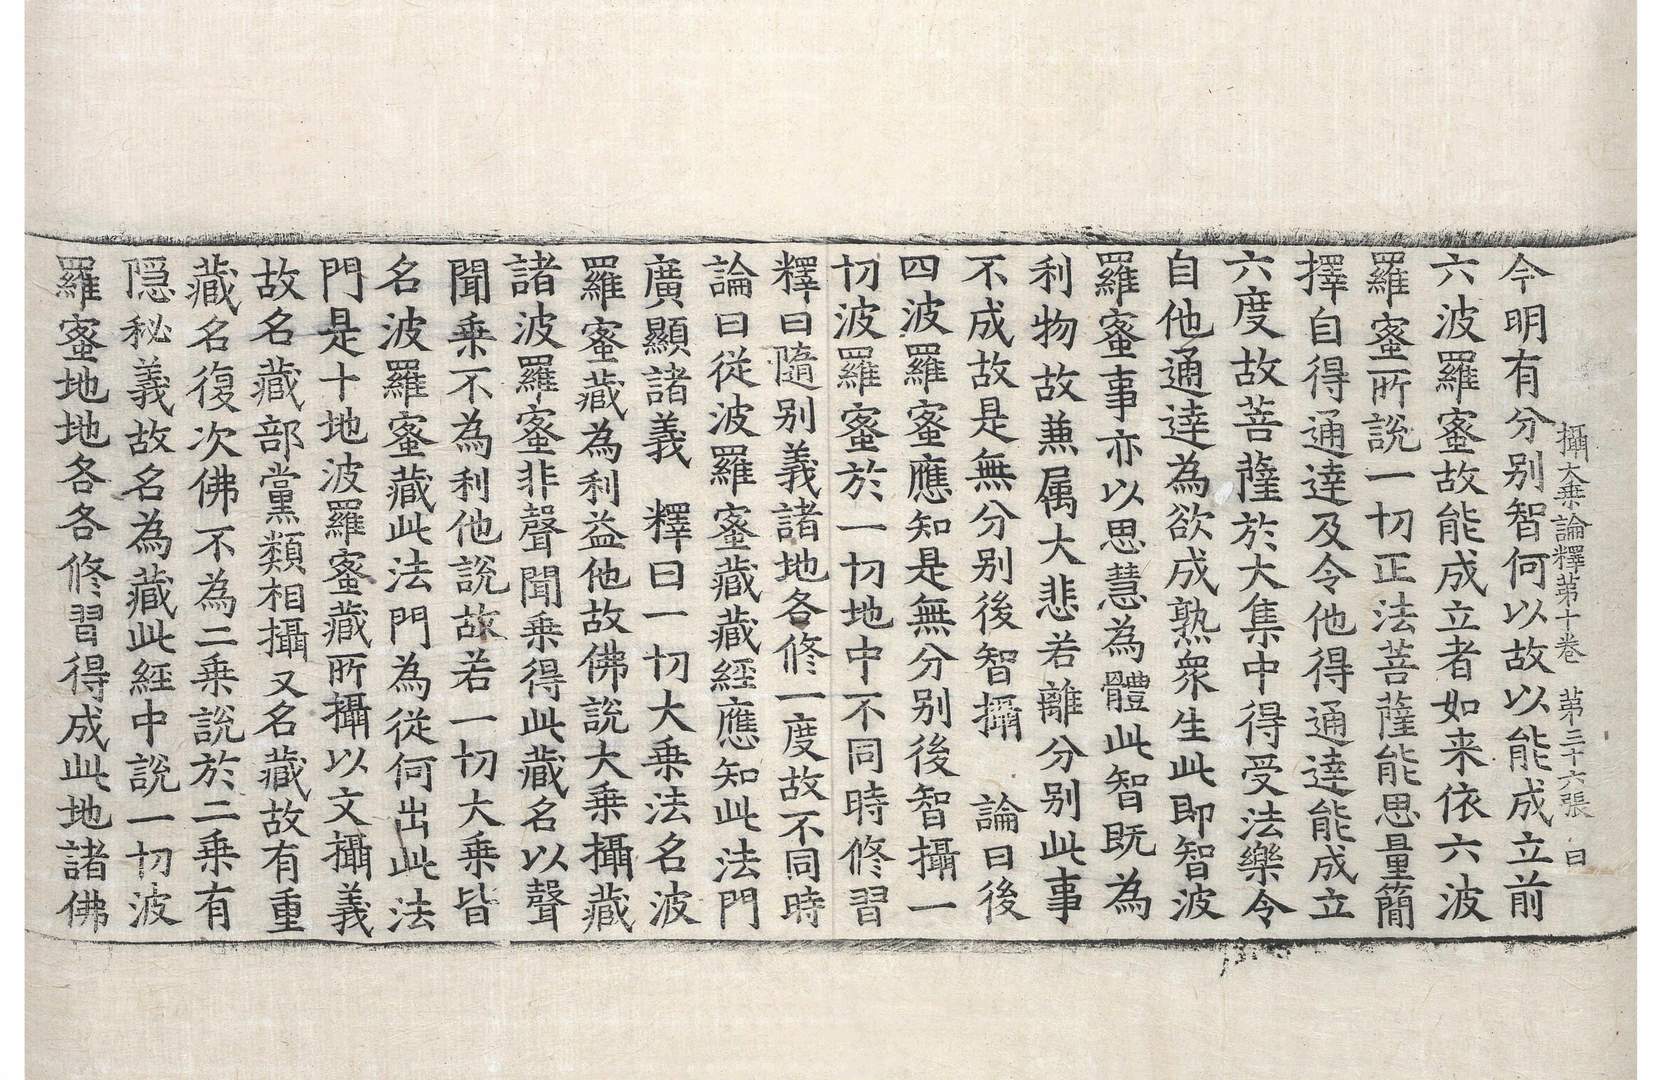 攝大乘論釋苐十卷 苐三十六張 曰
今明有分别智何以故以能成立前
六波羅蜜故能成立者如来依六波
羅蜜所說一切正法菩薩能思量簡
擇自得通達及令他得通達能成立
六度故菩薩於大集中得受法樂令
自他通達為欲成熟衆生此即智波
羅蜜事亦以思慧為體此智既為
利物故兼属大悲若離分别此事
不成故是無分别後智攝 論曰後
四波羅蜜應知是無分别後智攝一
切波羅蜜於一切地中不同時修習
釋曰隨别義諸地各修一度故不同時
論曰從波羅蜜藏藏經應知此法門
廣顯諸義 釋曰一切大乗法名波
羅蜜藏為利益他故佛說大乗攝藏
諸波羅蜜非聲聞乗得此藏名以聲
聞乗不為利他說故若一切大乗皆
名波羅蜜藏此法門為從何出此法
門是十地波羅蜜藏所攝以文攝義
故名藏部黨類相攝又名藏故有重
藏名復次佛不為二乗說於二乗有
隠秘義故名為藏此經中說一切波
羅蜜地地各各修習得成此地諸佛